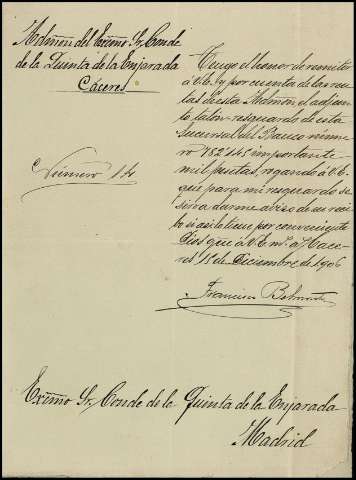 Admón del Exmo Sr. Conde
de la Quinta de la Enjarada
Cáceres
Número 14
Tengo el honor de remitir
á V.E. y por cuenta de las ren
tas de esta Admón el adjun
to talón resguardo de esta
Sucursal del Banco núme
ro 782145 importante
mil pesetas, rogando á V.E.
que para mi resguardo se
sirva darme aviso de su reci
bo si asi lo tiene por conveniente
Dios gue á V.E. ms. as. Cáce
res 15 de Diciembre de 1906
Francisco
Exmo Sr. Conde de la Quinta de la Enjarada
Madrid